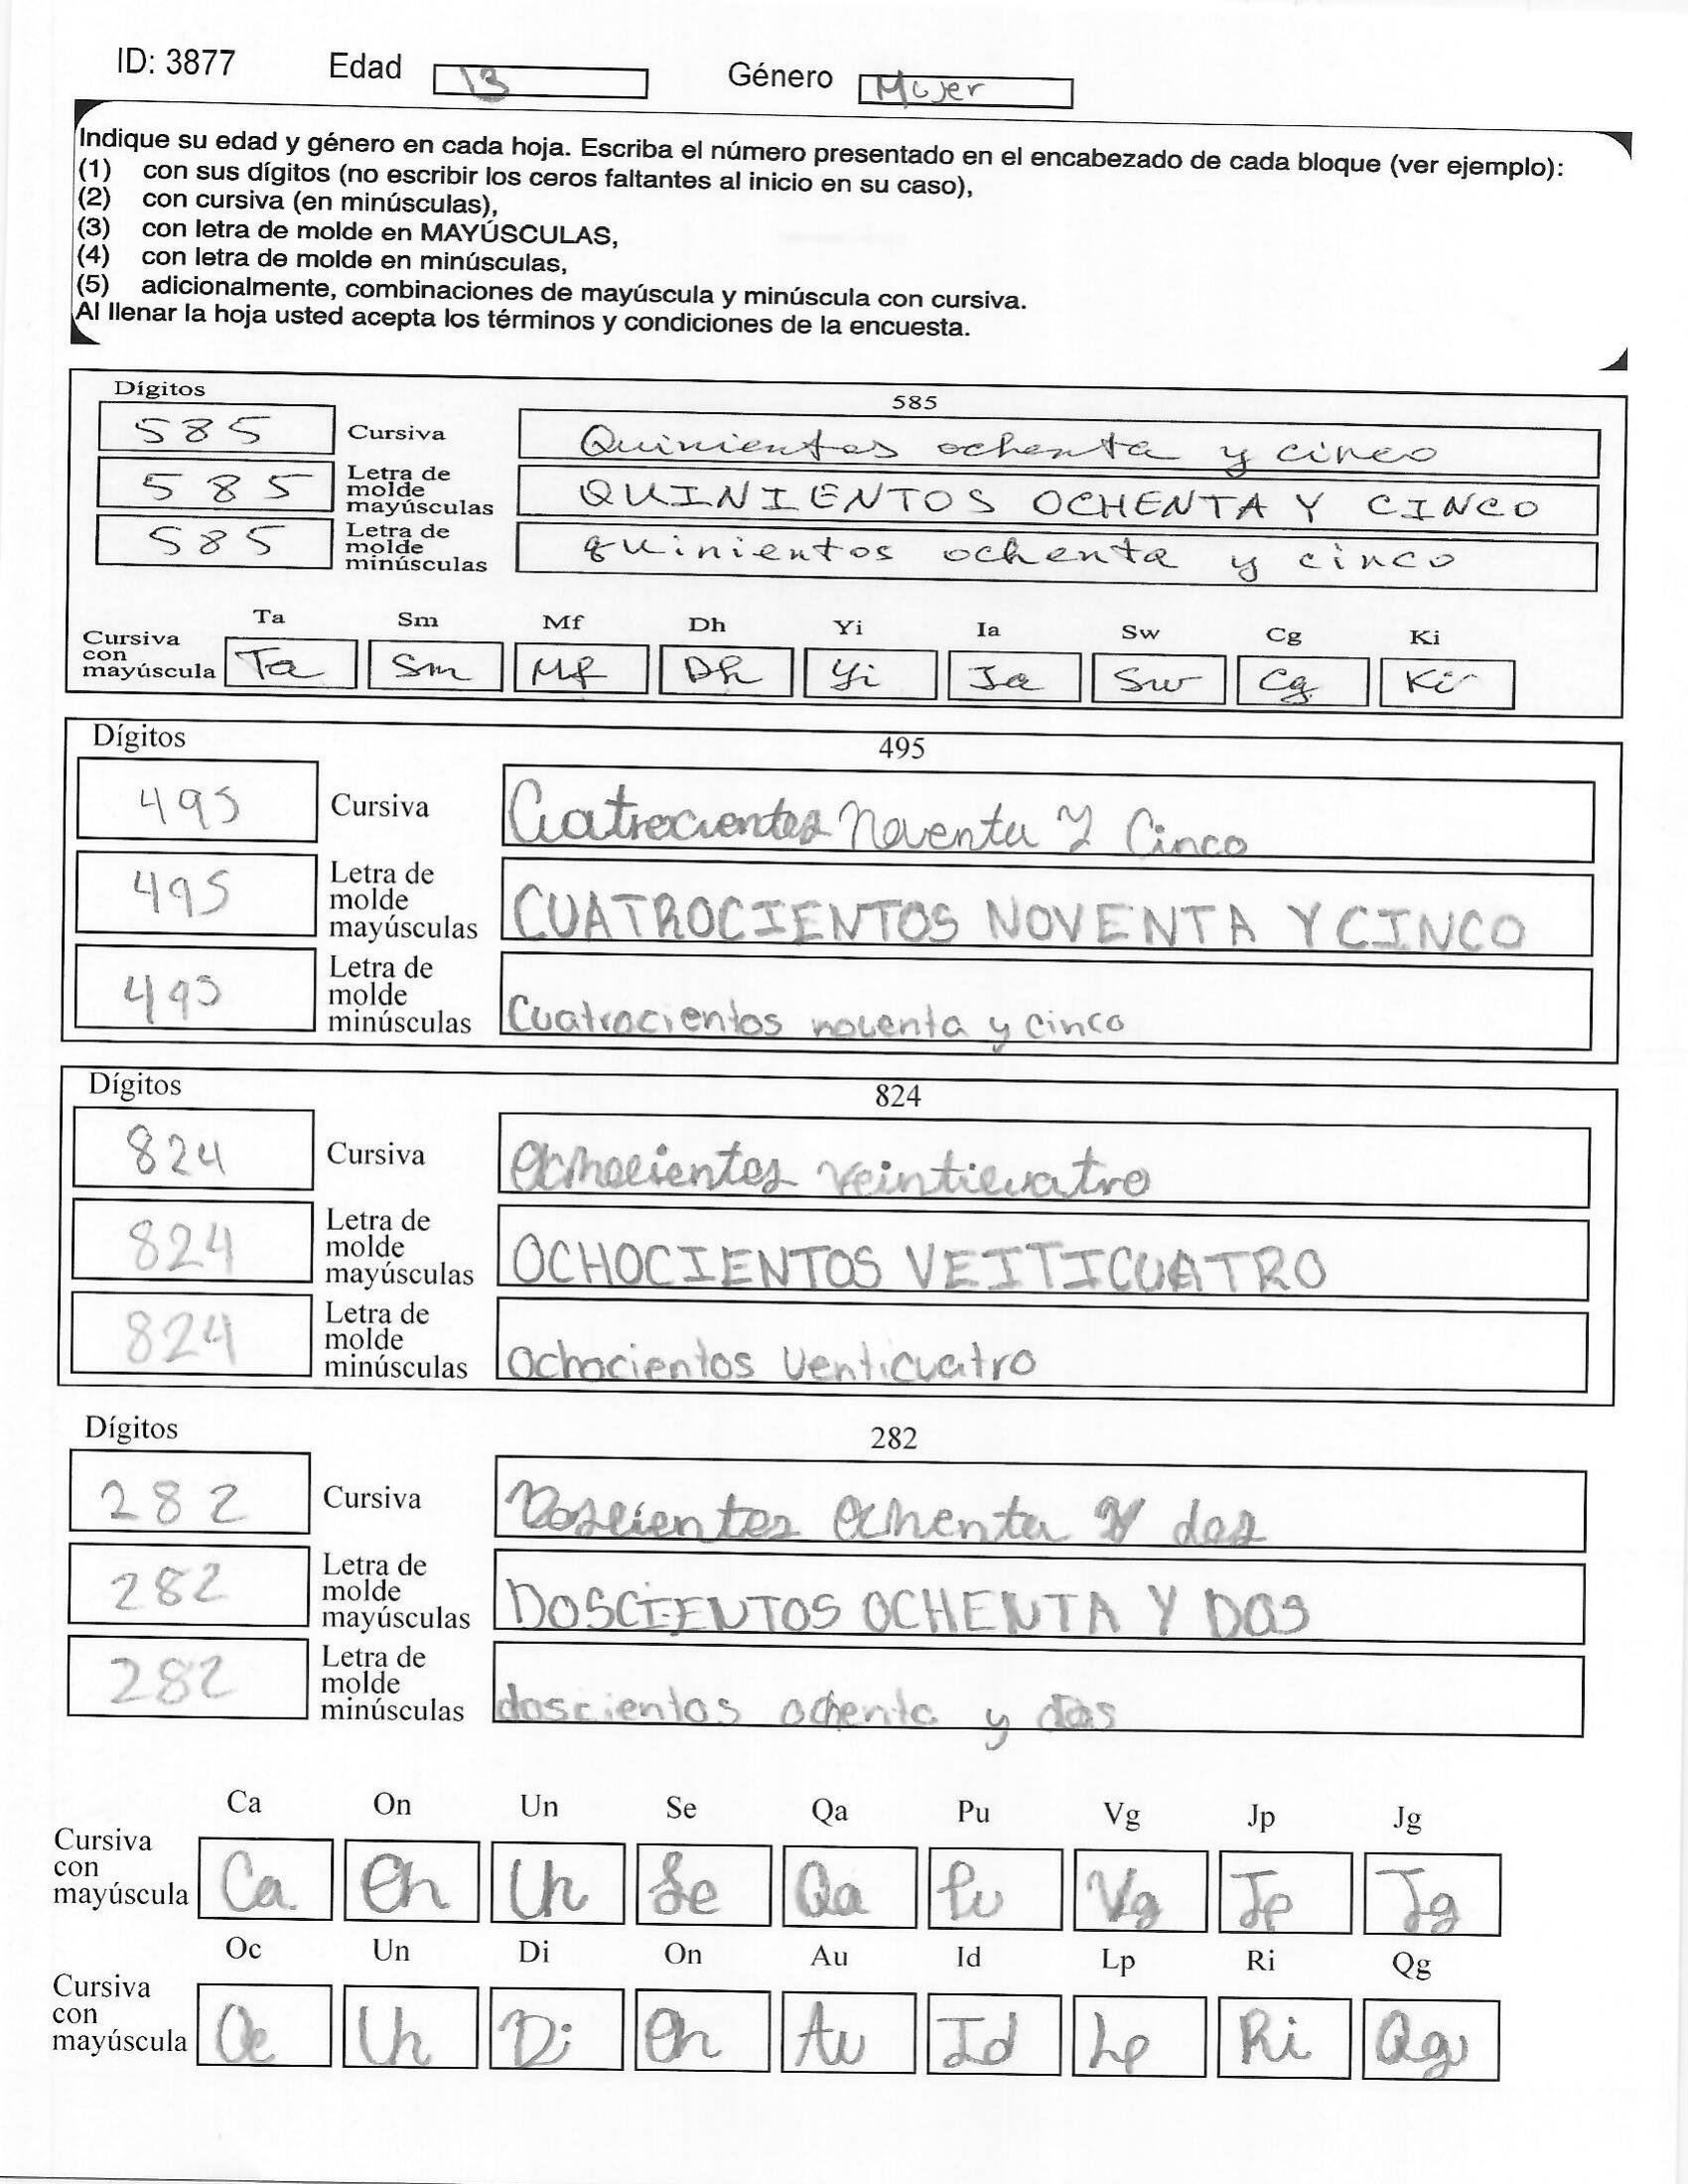 ID: 3877 Edad 13 Género Mujer
Indique su edad y género en cada hoja. Escriba el número presentado en el encabezado de cada bloque (ver ejemplo):
(1) con sus dígitos (no escribir los ceros faltantes al inicio en su caso),
(2) con cursiva (en minúsculas),
(3) con letra de molde en MAYÚSCULAS,
(4) con letra de molde en minúsculas,
(5) adicionalmente, combinaciones de mayúscula y minúscula con cursiva.
Al llenar la hoja usted acepta los términos y condiciones de la encuesta.
Dígitos 585
585 Cursiva Quinientos ochenta y cinco
585 Letra de molde mayúsculas QUINIENTOS OCHENTA Y CINCO
585 Letra de molde minúsculas quinientos ochenta y cinco
Ta Sm Mf Dh Yi Ia Sw Cg Ki
Cursiva con mayúscula Ta Sm Mf Dh Yi Ia Sw Cg Ki
Dígitos 495
495 Cursiva Cuatrocientos Noventa Y Cinco
495 Letra de molde mayúsculas CUATROCIENTOS NOVENTA Y CINCO
495 Letra de molde minúsculas Cuatrocientos noventa y cinco
Dígitos 824
824 Cursiva Ochocientos veinticuatro
824 Letra de molde mayúsculas OCHOCIENTOS VEITICUATRO
824 Letra de molde minúsculas Ochocientos venticuatro
Dígitos 282
282 Cursiva Doscientos Ochenta Y dos
282 Letra de molde mayúsculas DOSCIENTOS OCHENTA Y DOS
282 Letra de molde minúsculas doscientos ochenta y dos
Ca On Un Se Qa Pu Vg Jp Jg
Cursiva con mayúscula Ca. On Un Se Qa Pu Vg Jp Jg
Oc Un Di On Au Id Lp Ri Qg
Cursiva con mayúscula Oc Un Di On Au Id Lp Ri Qg